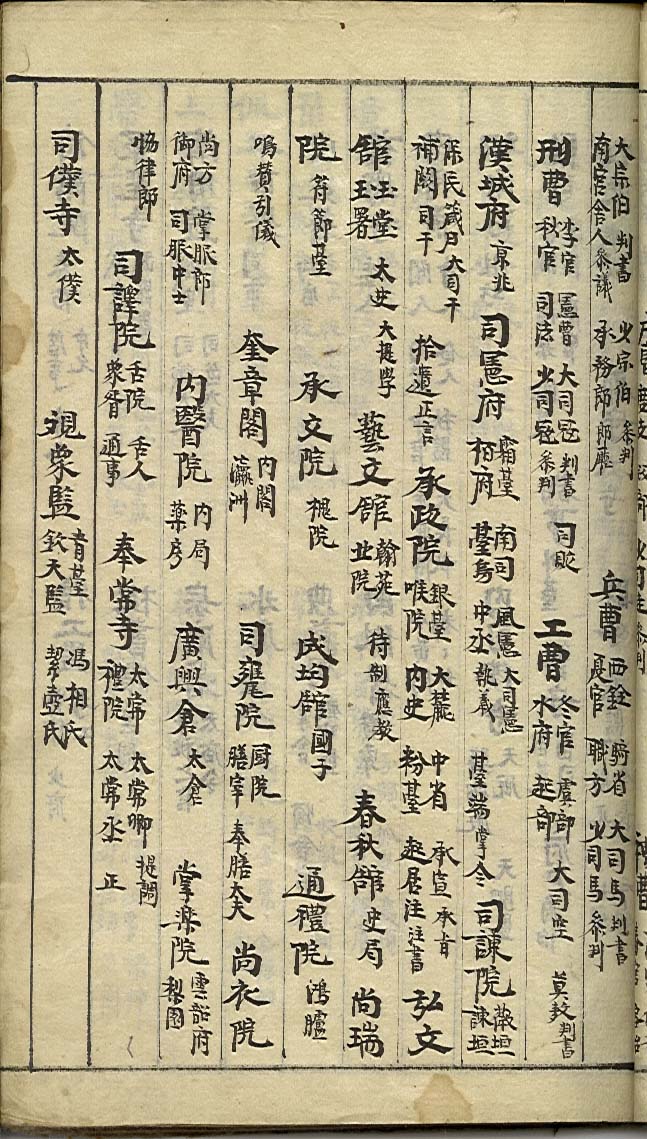 大宗伯 判書 少宗伯 參判 南官舍人 參議 承務郎 郎廳 兵曹 西銓 騎省 大司馬 判書 夏官 職方 少司馬 參判
刑曹 李官 憲曹 大司寇 判書 秋官 司法 少司寇 參判 工曹 冬官 虞部 大司空 判書 水府 起部
漢城府 京兆 司憲府 霜臺 南司 風憲 大司憲 栢府 臺烏 中丞 執義 臺端 掌令 司諫院 薇垣 諫垣
補闕 司干 大司干 拾遺 正言 承政院 銀臺 大麓 中省 承宣 承旨 喉院 內史 粉臺 起居注 注書 弘文
舘 玉堂 玉署 太史 大提學 藝文舘 翰苑 北院 待制 應教 春秋舘 史局 尚瑞
院 符節臺 承文院 槐院 成均舘 國子 通禮院 鴻臚
鳴贊 引儀 奎章閣 內閣 瀛洲 司饔院 厨院 膳宰 奉膳大夫 尚衣院
尚方 掌服郎 御府 司服中士 內醫院 內局 藥房 廣興倉 太倉 掌樂院 雲韶府 梨園
協律郎 司譯院 舌院 舌人 象胥 通事 奉常寺 太常 太常卿 提調 禮院 太常丞 正
司僕寺 太僕 視象監 青臺 馮相氏 欽天監 挈壺氏